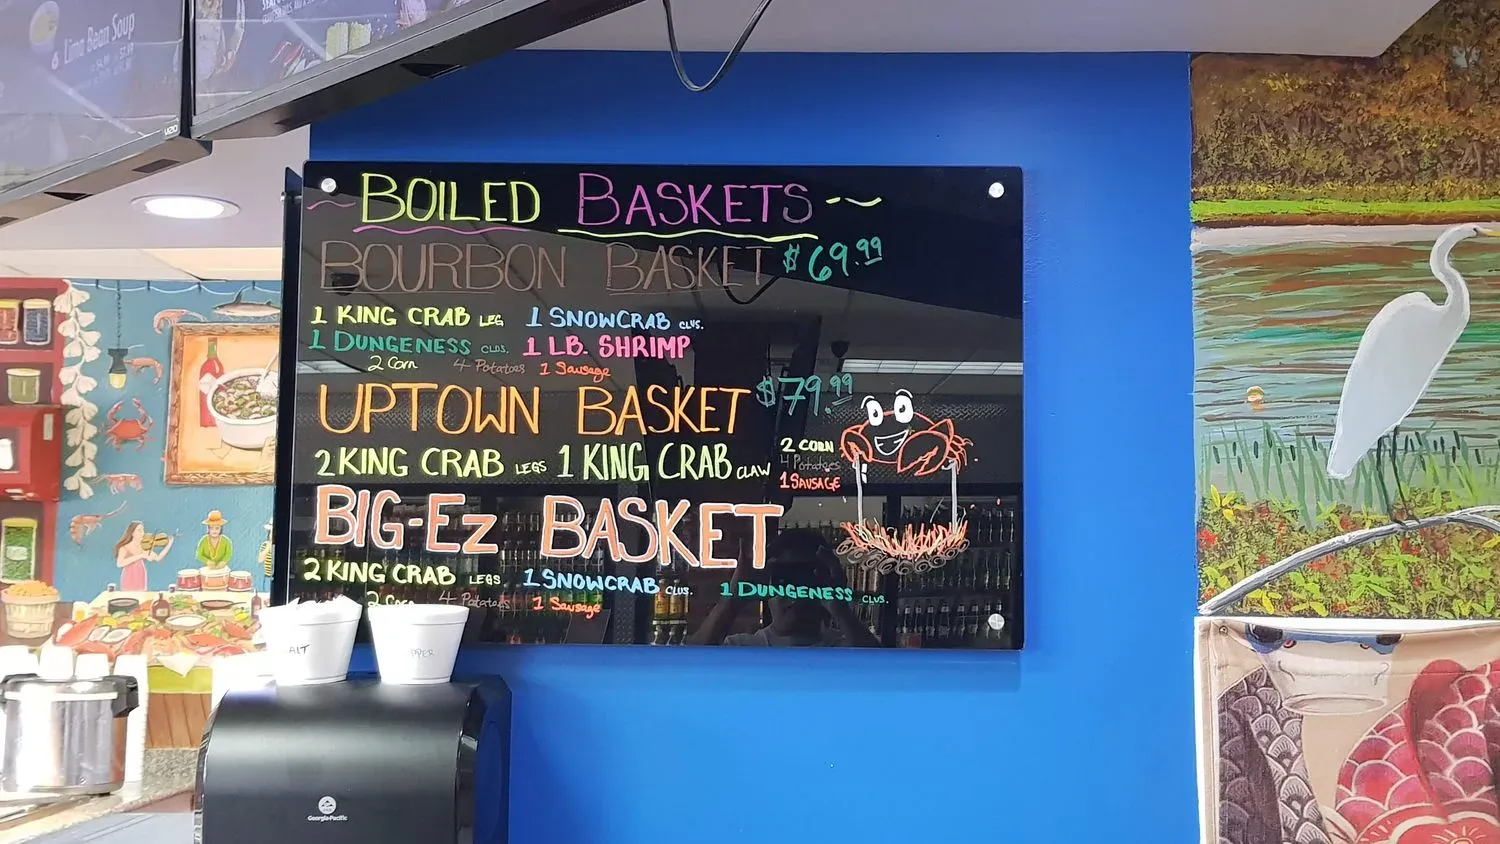 Lima Bean Soup
VIZIO
~ BOILED BASKETS ~
BOURBON BASKET $69.99
1 KING CRAB LEG 1 SNOWCRAB CLUS.
1 DUNGENESS CLUS. 1 LB. SHRIMP
2 Corn 4 Potatoes 1 Sausage
UPTOWN BASKET $79.99
2 KING CRAB LEGS 1 KING CRAB CLAW
2 CORN
4 Potatoes
1 SAUSAGE
BIG-EZ BASKET
2 KING CRAB LEGS 1 SNOWCRAB CLUS. 1 DUNGENESS CLUS.
2 Corn 4 Potatoes 1 Sausage
ALT
PPER
Georgia-Pacific